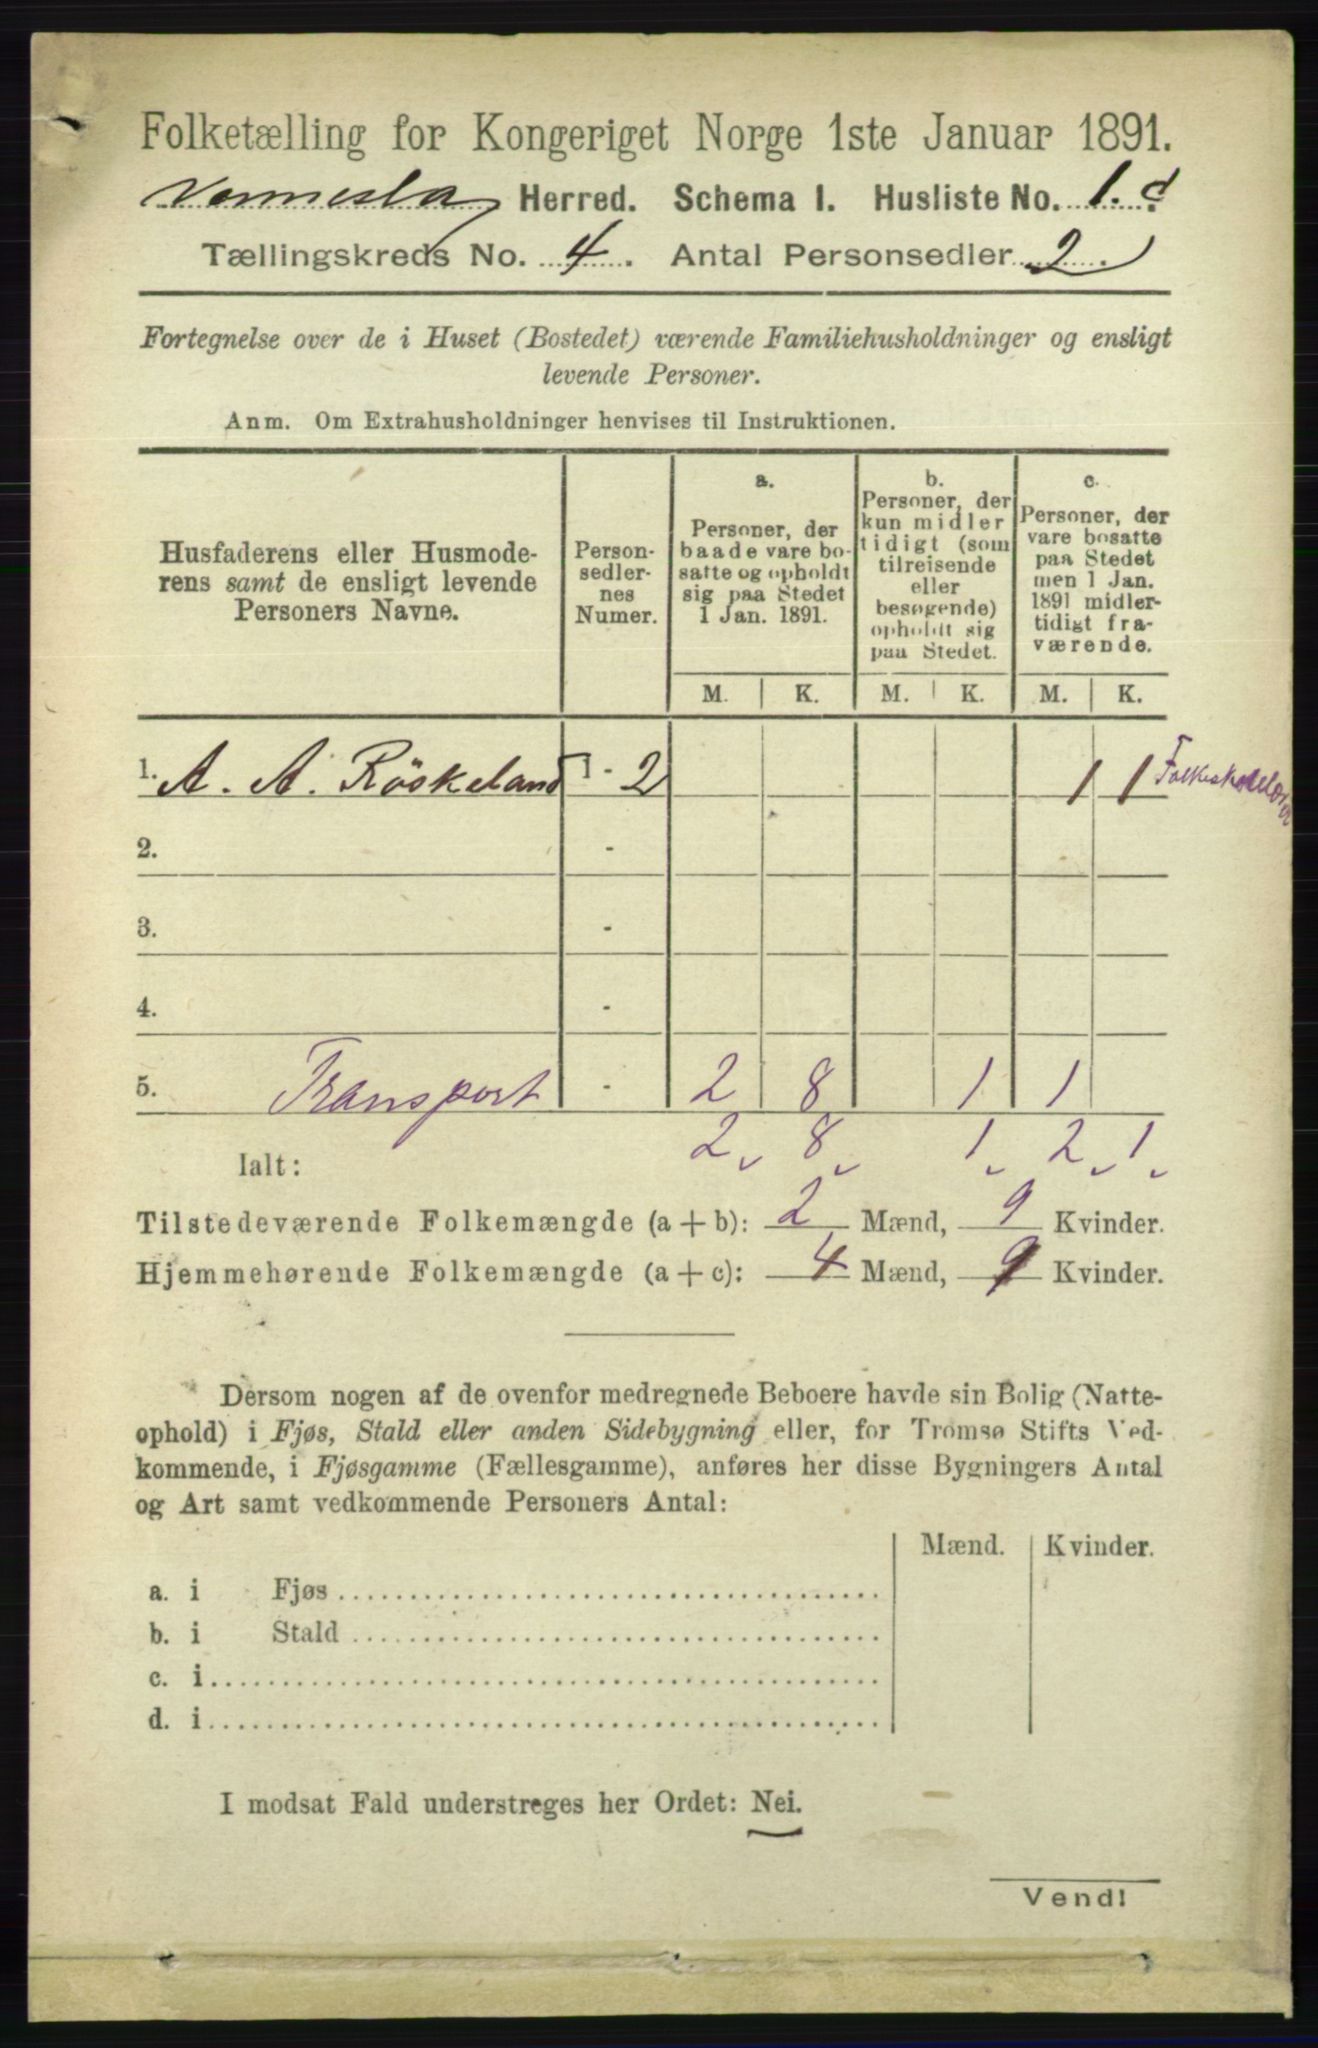 Folketælling for Kongeriget Norge 1ste Januar 1891.
Vennesla Herred. Schema I. Husliste No. 1.d
Tællingskreds No. 4. Antal Personsedler 2.
Fortegnelse over de i Huset (Bostedet) værende Familiehusholdninger og ensligt
levende Personer.
Anm. Om Extrahusholdninger henvises til Instruktionen.
Husfaderens eller Husmode-
rens samt de ensligt levende
Personers Navne.
Person-
sedler-
nes
Numer.
a.
Personer, der
baade vare bo-
satte og opholdt
sig paa Stedet
1 Jan. 1891.
b.
Personer, der
kun midler
tidigt (som
tilreisende
eller
besøgende)
opholdt sig
paa Stedet.
c.
Personer, der
vare bosatte
paa Stedet
men 1 Jan.
1891 midler-
tidigt fra-
værende.
M. K. M. K. M. K.
1. A. A. Röskeland 1 - 2 1 1
2. -
3. -
4. -
5. Transport - 2 8 1 1
Ialt: 2 8 1 2 1
Tilstedeværende Folkemængde (a + b): 2 Mænd, 9 Kvinder.
Hjemmehørende Folkemængde (a + c): 4 Mænd, 9 Kvinder.
Dersom nogen af de ovenfor medregnede Beboere havde sin Bolig (Natte-
ophold) i Fjøs, Stald eller anden Sidebygning eller, for Tromsø Stifts Ved-
kommende, i Fjøsgamme (Fællesgamme), anføres her disse Bygningers Antal
og Art samt vedkommende Personers Antal:
Mænd. Kvinder.
a. i Fjøs
b. i Stald
c. i
d. i
I modsat Fald understreges her Ordet: Nei.
Vend!